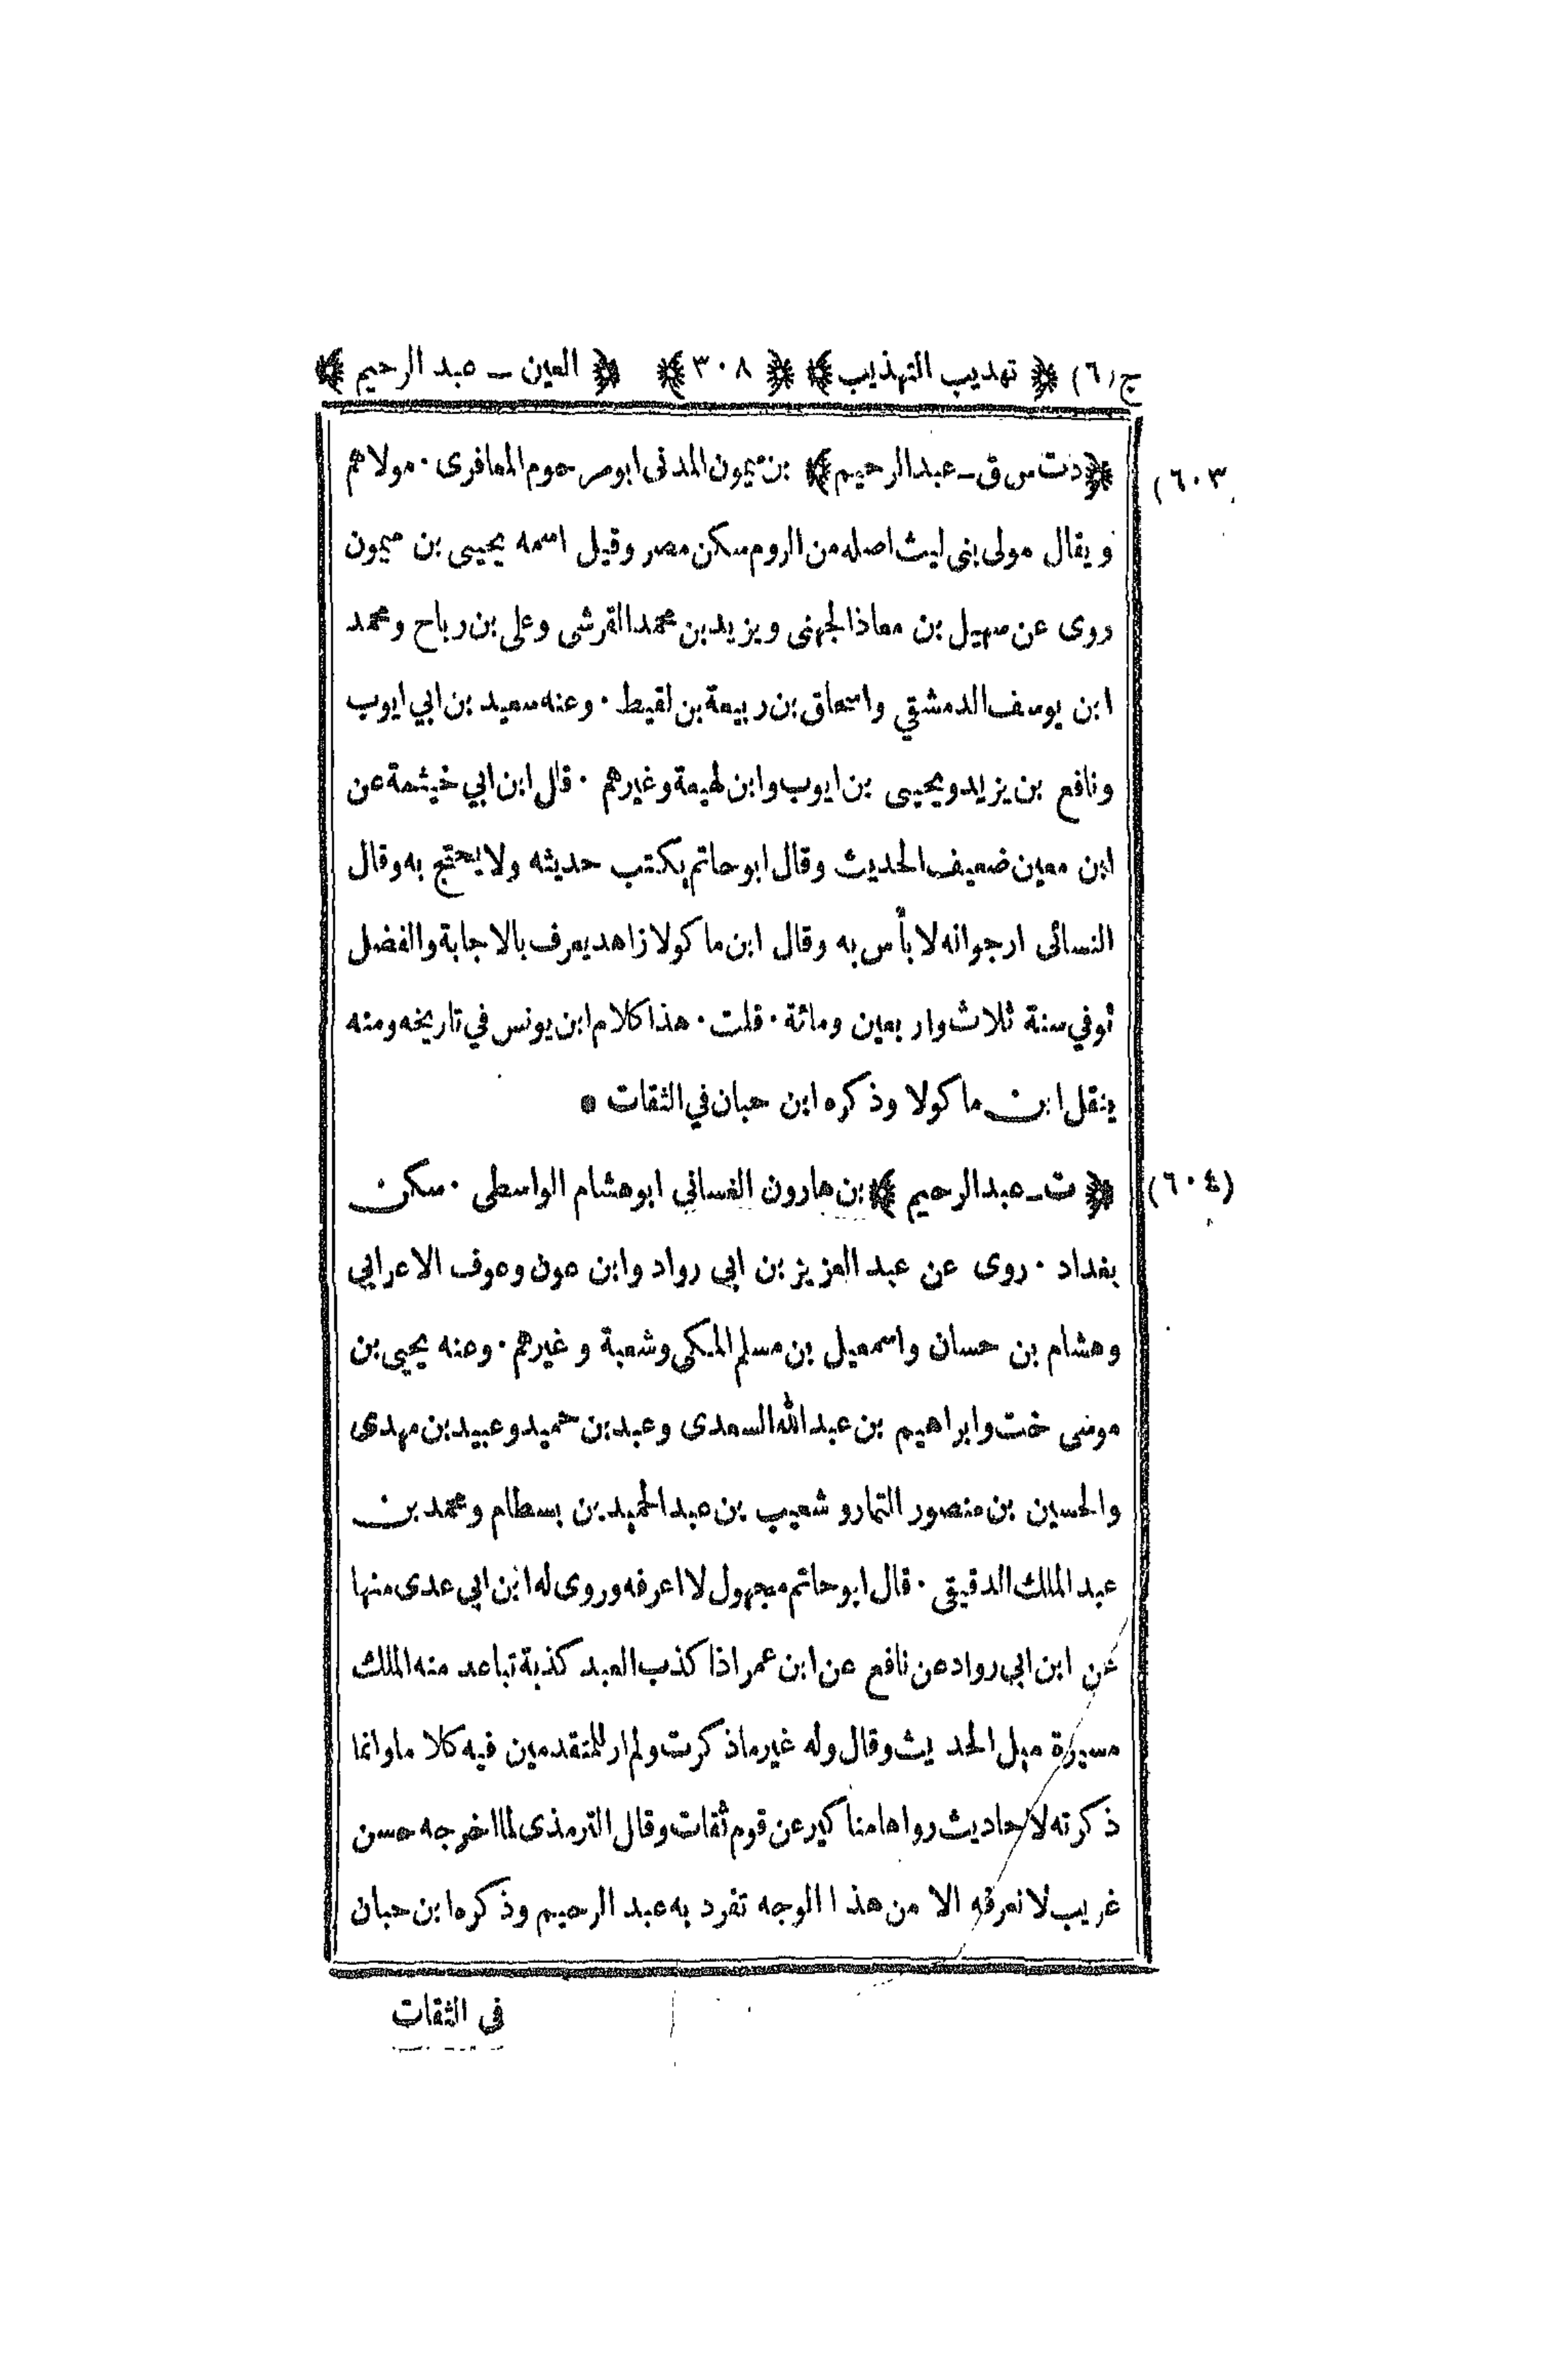 ج (٦) ﴿ تهذيب التهذيب ﴾ ﴿ ٣٠٨ ﴾ ﴿ العين ــ عبد الرحيم ﴾
(٦٠٣) ﴿ دت س ق ــ عبد الرحيم ﴾ بن ميمون المدنى ابو مرحوم المعافرى . مولاهم
ويقال مولى بنى ليث اصله من الروم سكن مصر وقيل اسمه يحيى بن ميمون
روى عن سهيل بن معاذ الجهنى ويزيد بن محمد القرشى وعلى بن رباح ومحمد
ابن يوسف الدمشقي واسحاق بن ربيعة بن لقيط . وعنه سعيد بن ابي ايوب
ونافع بن يزيد ويحيى بن ايوب وابن لهيعة وغيرهم . قال ابن ابي خيثمة عن
ابن معين ضعيف الحديث وقال ابو حاتم يكتب حديثه ولا يحتج به وقال
النسائى ارجو انه لا بأس به وقال ابن ماكولا زاهد يعرف بالاجابة والفضل
توفي سنة ثلاث واربعين ومائة . قلت . هذا كلام ابن يونس في تاريخه ومنه
ينقل ابن ماكولا وذكره ابن حبان في الثقات •
(٦٠٤) ﴿ ت ــ عبد الرحيم ﴾ بن هارون الغساني ابو هشام الواسطى . سكن
بغداد . روى عن عبد العزيز بن ابي رواد وابن عون وعوف الاعرابي
وهشام بن حسان واسمعيل بن مسلم المكى وشعبة وغيرهم . وعنه يحيى بن
موسى خت وابراهيم بن عبد الله السعدى وعبد بن حميد وعبيد بن مهدى
والحسين بن منصور التمار وشعيب بن عبد الحميد بن بسطام ومحمد بن
عبد الملك الدقيقى . قال ابو حاتم مجهول لا اعرفه وروى له ابن ابي عدى منها
عن ابن ابي رواد عن نافع عن ابن عمر اذا كذب العبد كذبة تباعد منه الملك
مسيرة ميل الحديث وقال وله غير ما ذكرت ولم ار للمتقدمين فيه كلاما وانما
ذكرته لاحاديث رواها مناكير عن قوم ثقات وقال الترمذى لما اخرجه حسن
غريب لا نعرفه الا من هذا الوجه تفرد به عبد الرحيم وذكره ابن حبان
في الثقات